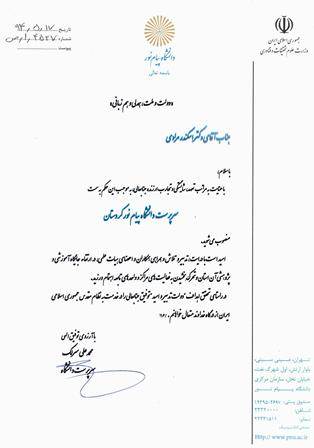 جمهوری اسلامی ایران
وزارت علوم تحقیقات و فناوری
دانشگاه پیام نور
باسمه تعالی
تاریخ ۹۴/۵/۱۷
شماره
پیوست
«دولت و ملت، همدلی و هم زبانی»
جناب آقای دکتر اسکندر مرادی
باسلام؛
با عنایت به مراتب تعهد، شایستگی و تجارب ارزنده جنابعالی، به موجب این حکم به سمت
سرپرست دانشگاه پیام نور کردستان
منصوب می‌شوید.
امید است با عنایت، تدبیر و تلاش و همراهی همکاران و اعضای هیات علمی، در ارتقاء جایگاه آموزشی و
پژوهشی آن استان و تحرک بخشیدن به فعالیت‌های مراکز و واحدهای تابعه اهتمام ورزید.
در راستای تحقق اهداف "دولت تدبیر و امید" توفیق جنابعالی را در خدمت به نظام مقدس جمهوری اسلامی
ایران از درگاه خداوند متعال خواهانم.
با آرزوی توفیق الهی
محمد علی سرلک
سرپرست دانشگاه
تهران، مینی سیتی،
بلوار ارتش، اول شهرک نفت
خیابان نخل، سازمان مرکزی
دانشگاه پیام نور
صندوق پستی: ۱۹۳۹۵-۴۶۹۷
تلفن: ۲۳۳۲۰۰۰۰
نمابر:
http://www.pnu.ac.ir